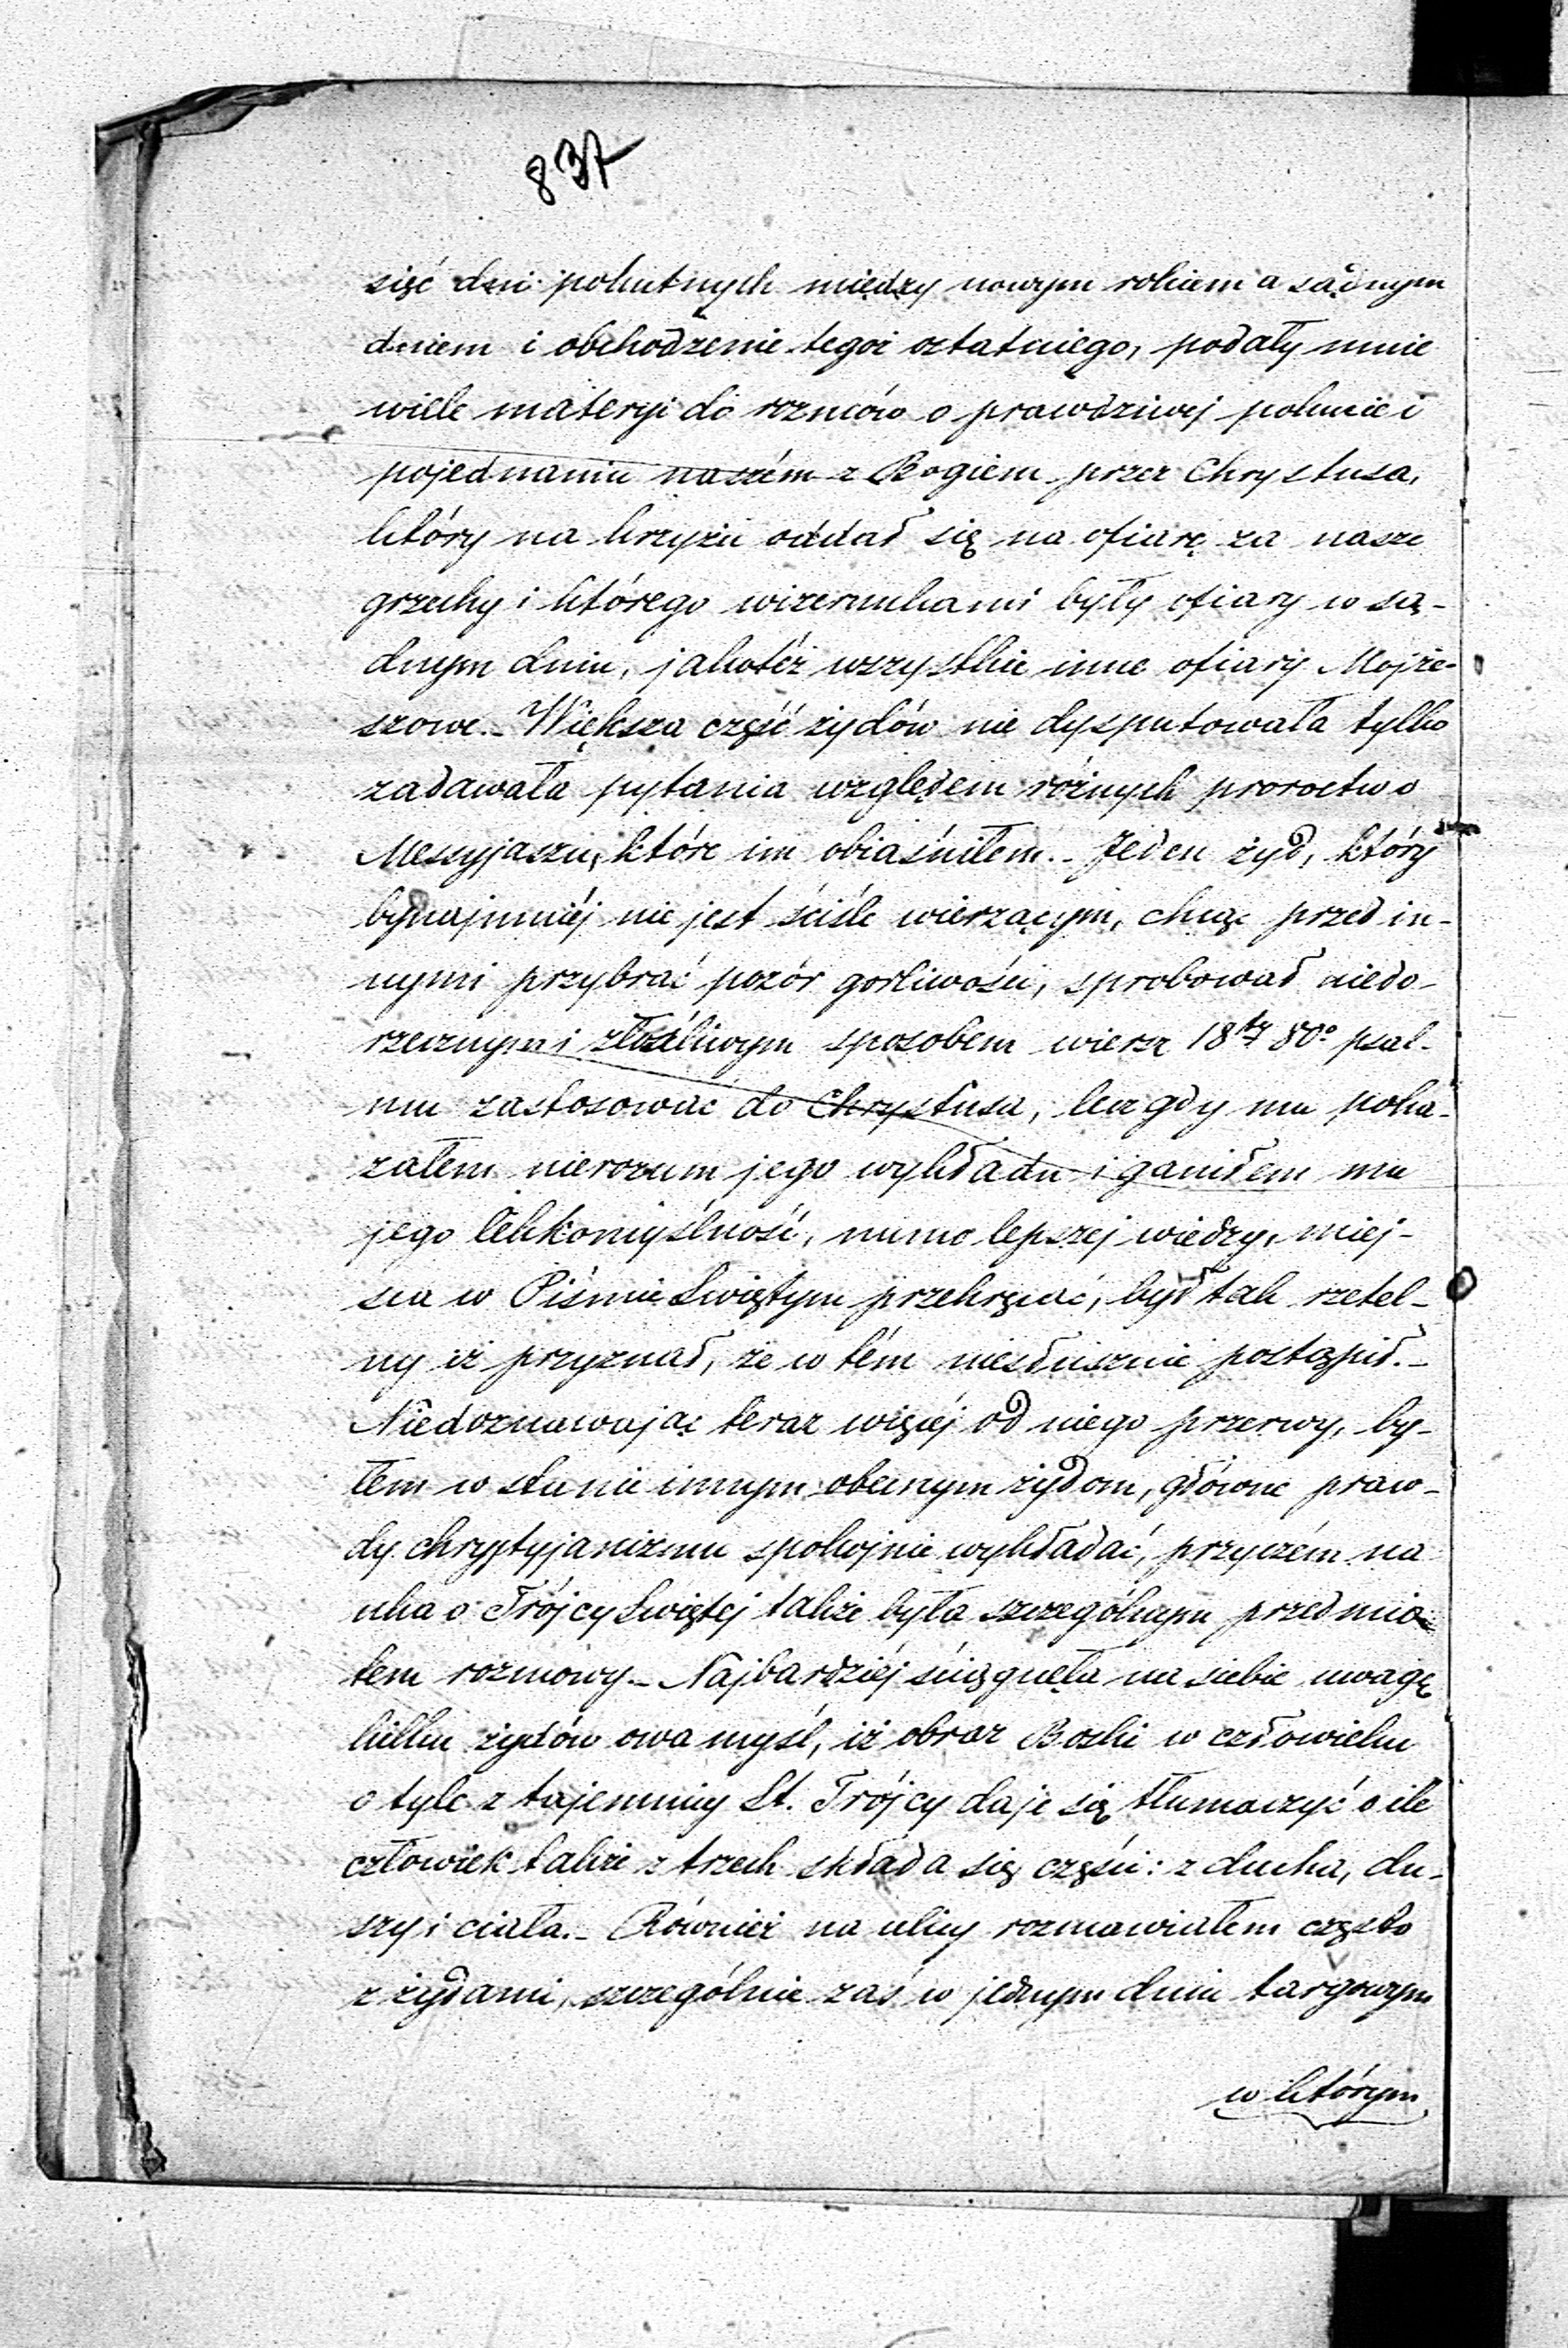 837
sięć dni pokutnych między nowym rokiem a sądnym
dniem i obchodzenie tegoż ostatniego, podały mnie
wiele materyi do rozmów o prawdziwej pokucie i
pojednaniu naszém z Bogiem przez Chrystusa,
który na krzyżu oddał się na ofiarę za nasze
grzechy i którego wizerunkami były ofiary w są-
dnym dniu, jakotéż wszystkie inne ofiary Mojże-
szowe. - Większa część żydów nie dysputowała tylko
zadawała pytania względem różnych proroctw o
Messyjaszu, które im obiaśniłem. - Jeden żyd, który
bynajmniéj nie jest ściśle wierzącym, chcąc przed in-
nymi przybrać pozór gorliwości, sprobował niedo-
rzecznym i złośliwym sposobem wiersz 18ty 80o psal-
mu zastosować do Chrystusa, lecz gdy mu poka-
załem nierozum jego wykładu i ganiłem mu
jego lekkomyślność, mimo lepszej wiedzy, miej-
sca w Piśmie Swiętym przekręcać, był tak rzetel-
ny iż przyznał, że w tém niesłusznie postąpił. -
Niedoznawając teraz więcéj od niego przerwy, by-
łem w stanie innym obecnym żydom, główne praw-
dy chrystyjanizmu spokojnie wykładać, przyczém na
uka o Trójcy Swiętej także była szczególnym przedmio
tem rozmowy. - Najbardziéj ściągnęła na siebie uwagę
kilku żydów owa myśl, iż obraz Boski w człowieku
o tyle z tajemnicy St. Trójcy daje się tłumaczyć o ile
człowiek także z trzech składa się części: z ducha, du-
szy i ciała. - Również na ulicy rozmawiałem często
z żydami, szczególnie zaś w jednym dniu targowym
w którym